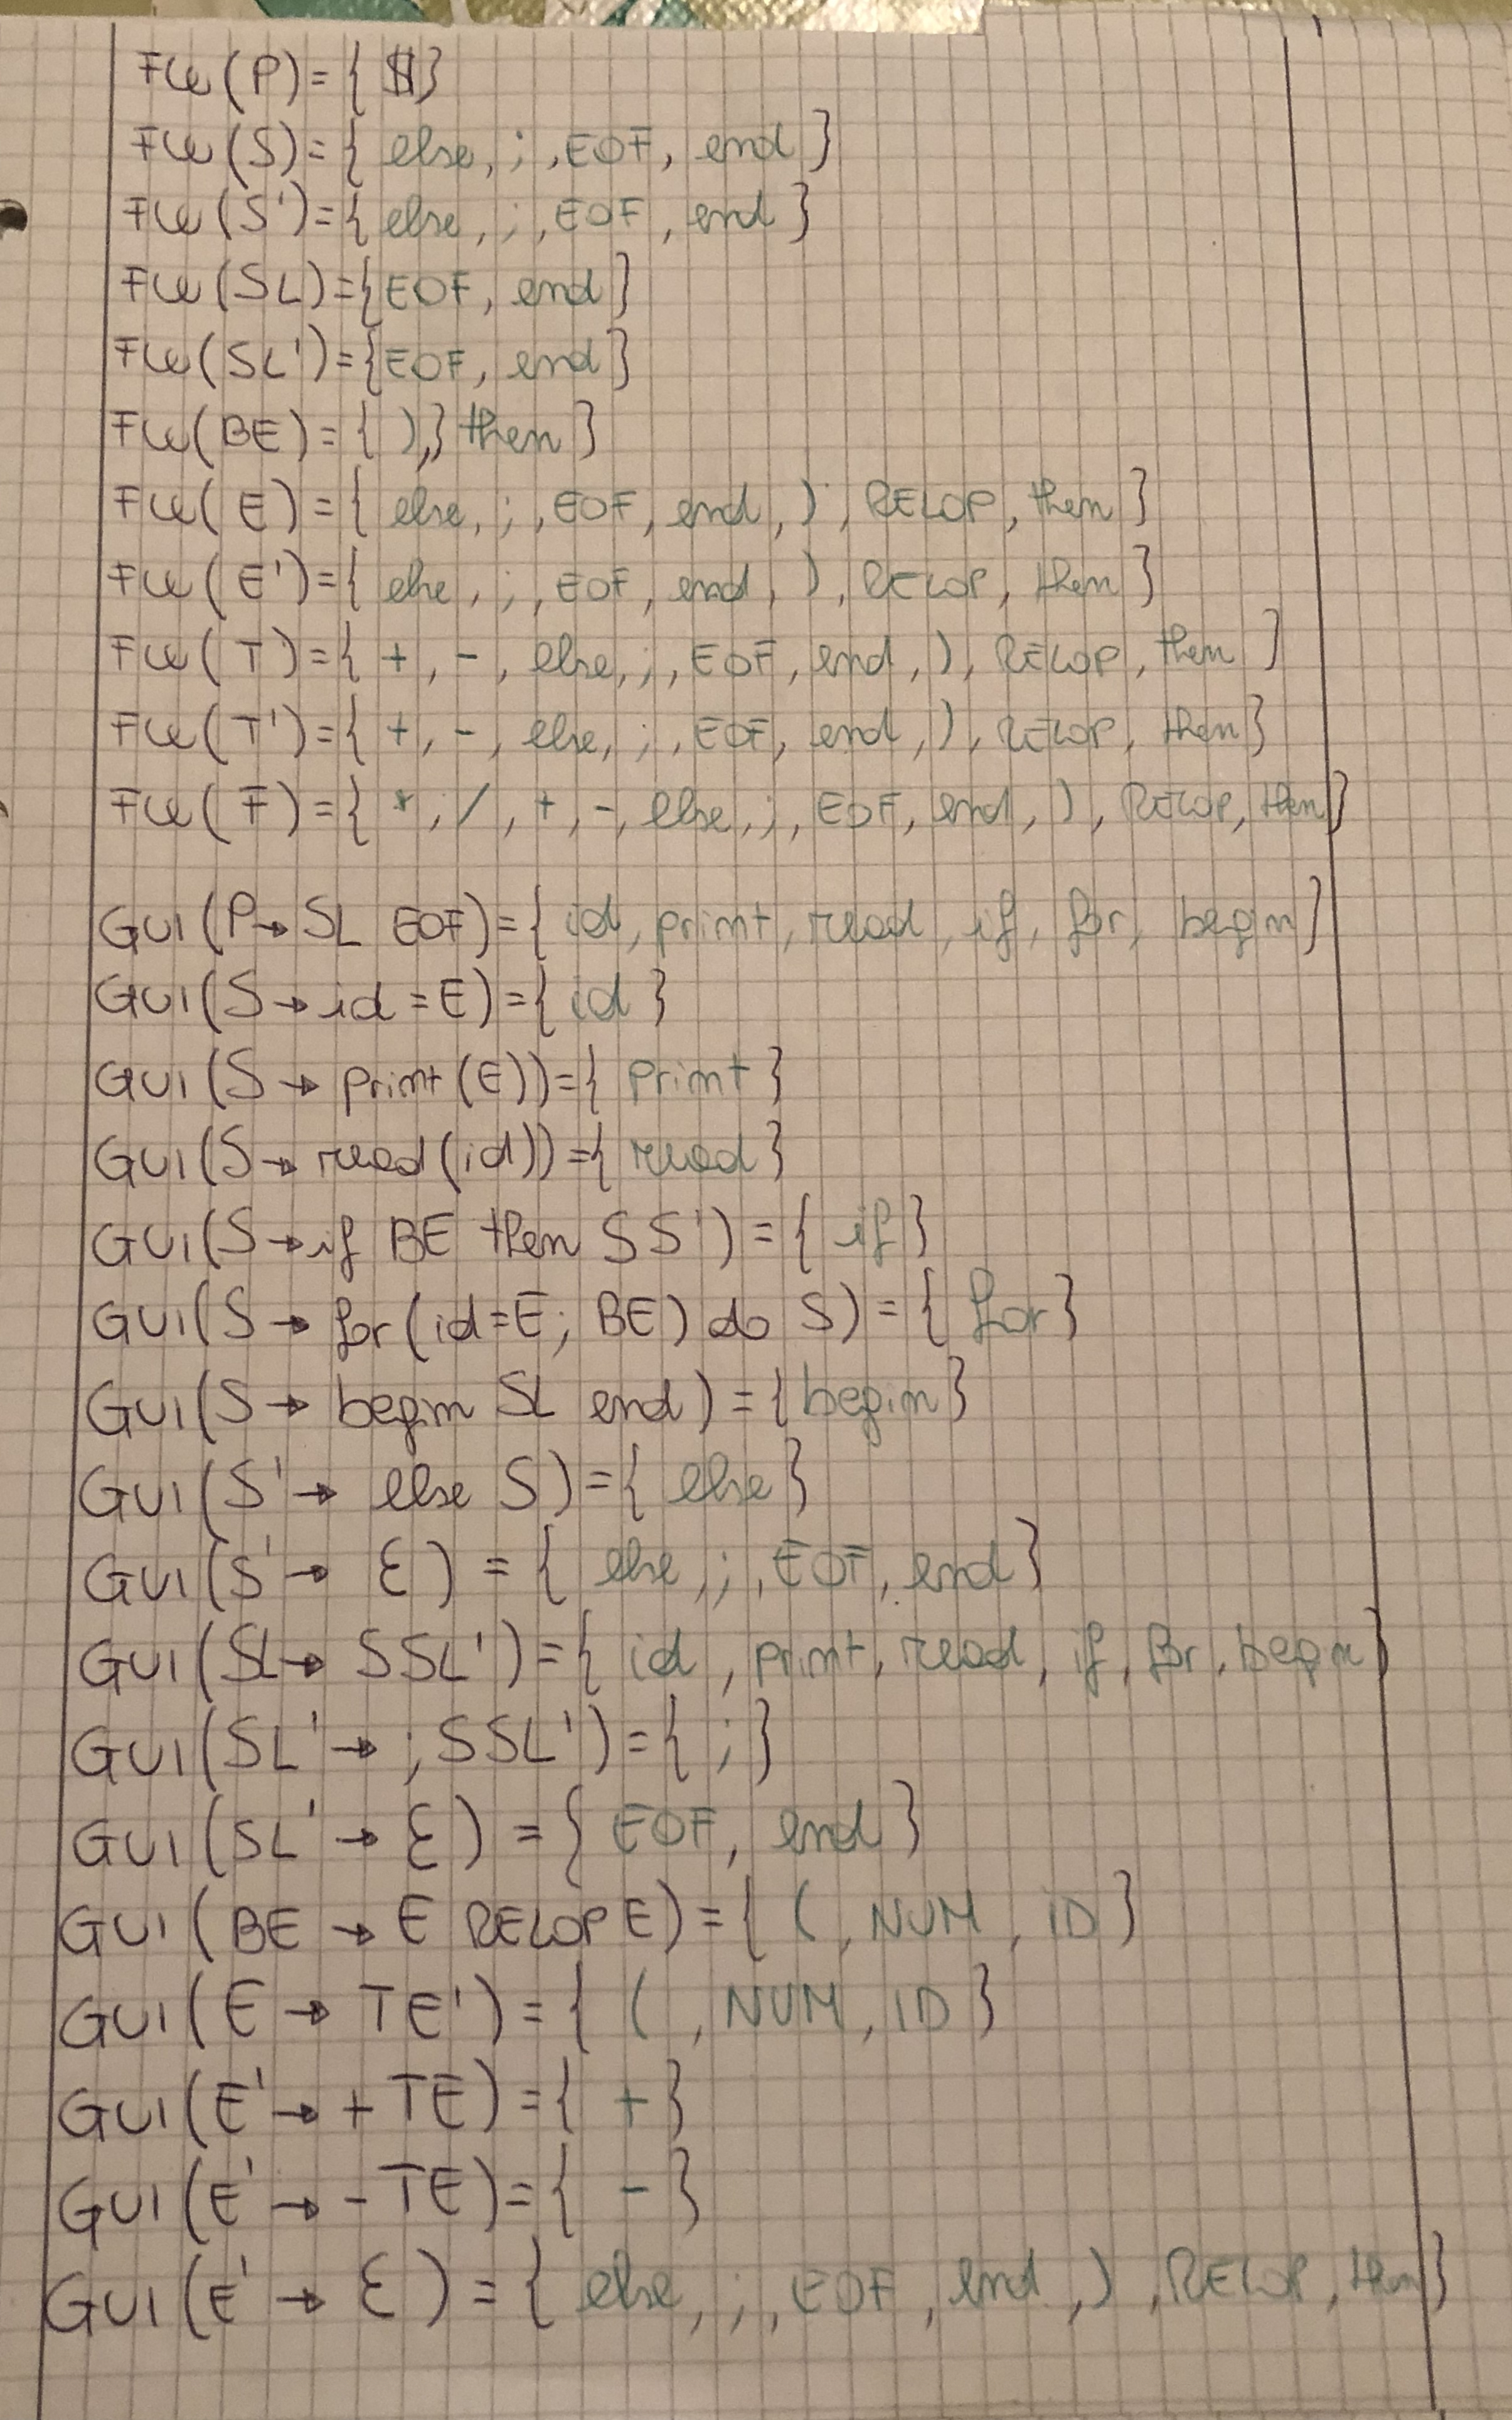 FW(P)={$}
FW(S)={ else, ; , EOF, end }
FW(S')={ else, ; , EOF, end }
FW(SL)={EOF, end}
FW(SL')={EOF, end}
FW(BE)={ ),} then }
FW(E)={ else, ; , EOF, end, ), RELOP, then }
FW(E')={ else, ; , EOF, end, ), RELOP, then }
FW(T)={ +, -, else, ; , EOF, end, ), RELOP, then }
FW(T')={ +, -, else, ; , EOF, end, ), RELOP, then }
FW(F)={ *, /, +, -, else, ; , EOF, end, ), RELOP, then }
GUI(P→ SL EOF)={ id, print, read, if, for, begin }
GUI(S→ id = E)={ id }
GUI(S → print(E))={ print }
GUI(S→ read(id))={ read }
GUI(S→if BE then S S') = { if }
GUI(S → for(id=E; BE) do S) = { for }
GUI(S → begin SL end) = { begin }
GUI(S' → else S)={ else }
GUI(S' → Ɛ) = { else, ; , EOF, end }
GUI(SL→ S SL')={ id, print, read, if, for, begin }
GUI(SL' → ; S SL')={ ; }
GUI(SL' → Ɛ) = { EOF, end }
GUI(BE → E RELOP E)={ (, NUM, ID }
GUI(E → TE')={ (, NUM, ID }
GUI(E' → + TE)={ + }
GUI(E' → - TE)={ - }
GUI(E' → Ɛ) = { else, ; , EOF, end, ), RELOP, then }